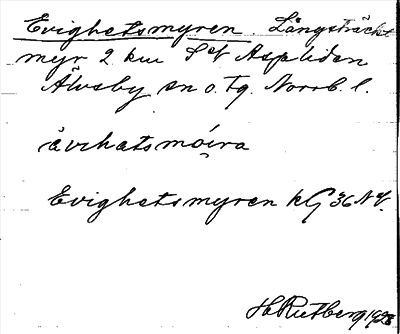 Evighetsmyren. Långsträckt
myr 2 km S*V Aspliden
Älvsby sn o. tg. Norrb. l.
ävihatsmóira
Evighetsmyren kG 36 NV.
H Rutberg 1928